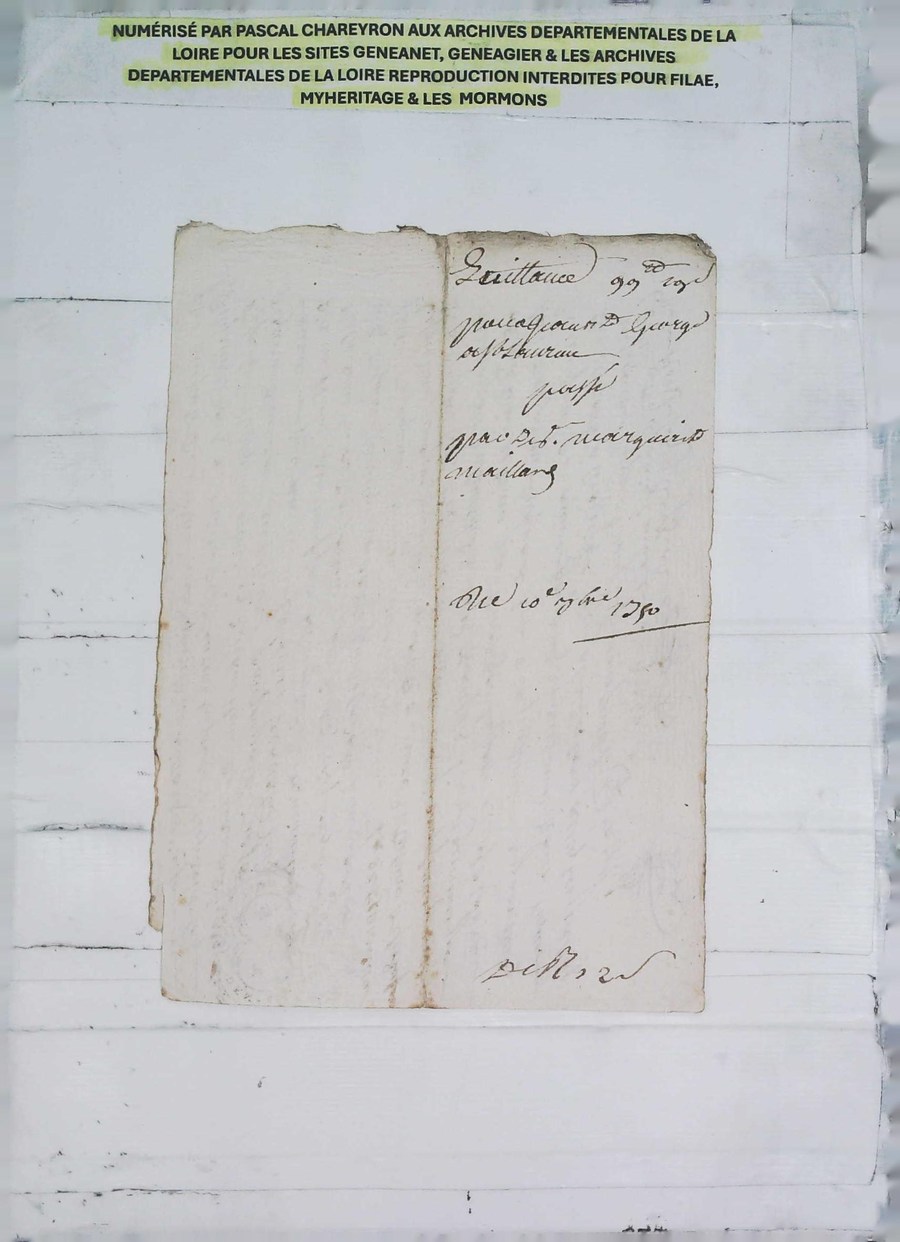 NUMÉRISÉ PAR PASCAL CHAREYRON AUX ARCHIVES DEPARTEMENTALES DE LA
LOIRE POUR LES SITES GENEANET, GENEAGIER & LES ARCHIVES
DEPARTEMENTALES DE LA LOIRE REPRODUCTION INTERDITES POUR FILAE,
MYHERITAGE & LES MORMONS
Quittance 99
George
passé
par marguerit
maillard
Du 10e 7bre 1750